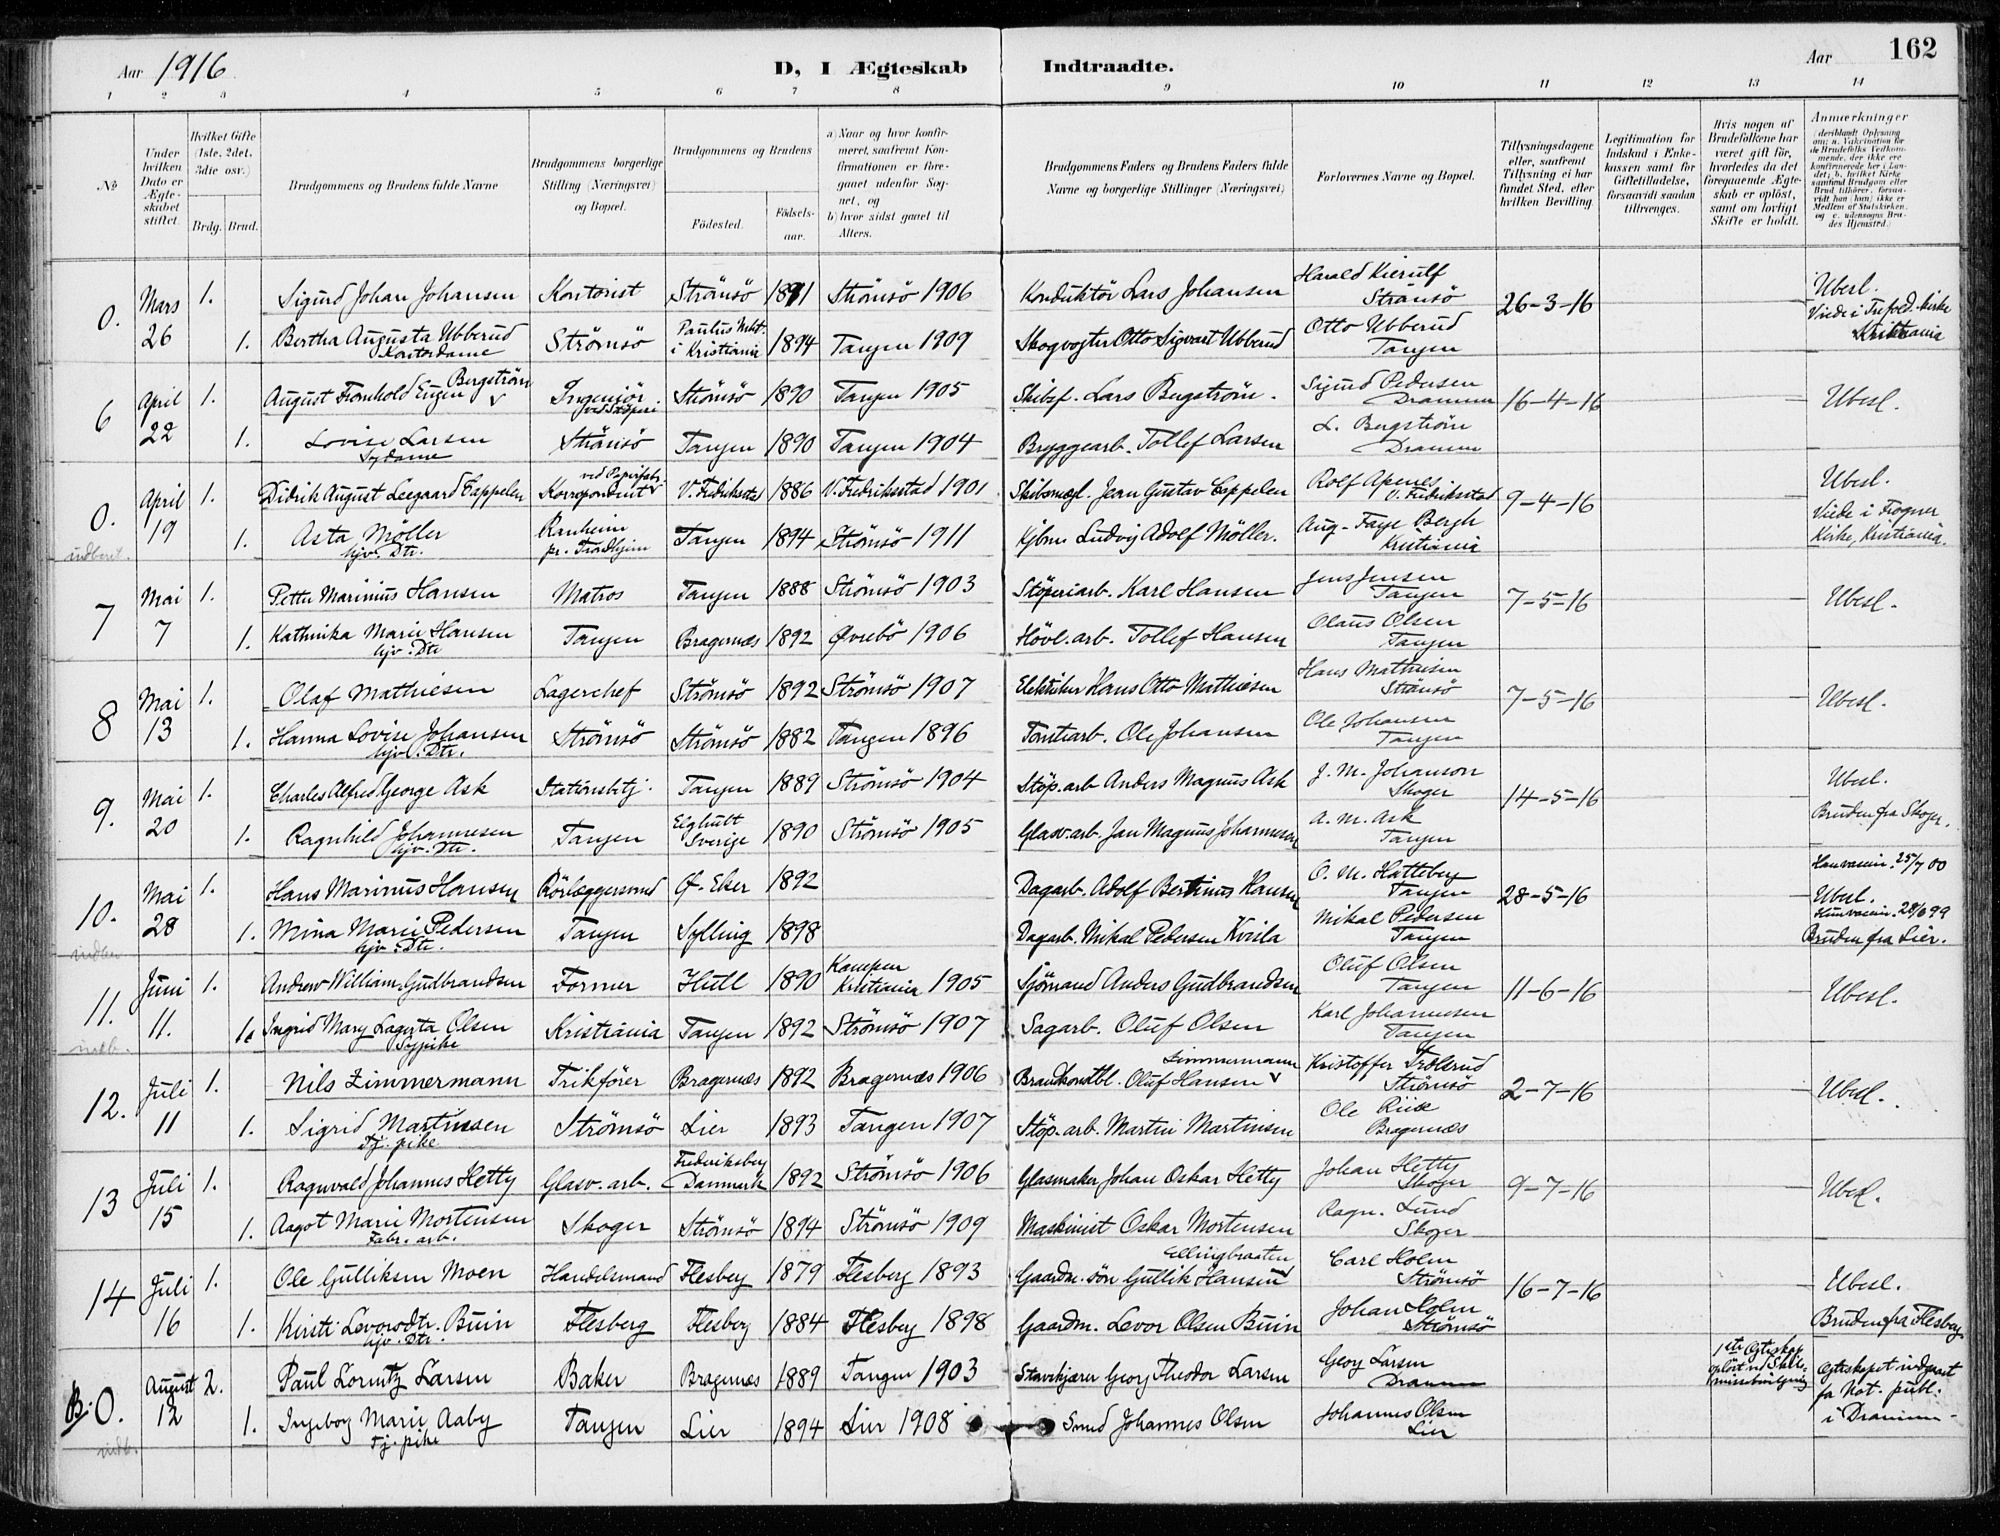 Aar 1916
D, I Ægteskab Indtraadte.
Aar 162
1 2 3 4 5 6 7 8 9 10 11 12 13 14
№
Under hvilken Dato er Ægteskabet stiftet.
Hvilket Gifte (1ste, 2det, 3die osv.)
Brdg. Brud.
Brudgommens og Brudens fulde Navne
Brudgommens borgerlige Stilling (Næringsvei) og Bopæl.
Brudgommens og Brudens
Fødested.
Fødselsaar.
a) Naar og hvor konfirmeret, saafremt Konfirmationen er foregaaet udenfor Sognet, og
b) hvor sidst gaaet til Alters.
Brudgommens Faders og Brudens Faders fulde Navne og borgerlige Stillinger (Næringsvei)
Forlovernes Navne og Bopæl.
Tillysningsdagene eller, saafremt Tillysning ei har fundet Sted, efter hvilken Bevilling.
Legitimation for Indskud i Enkekassen samt for Giftetilladelse, forsaavidt saadan tiltrænges.
Hvis nogen af Brudefolkene har været gift før, hvorledes da det foregaaende Ægteskab er opløst, samt om lovligt Skifte er holdt.
Anmærkninger
(deriblandt Oplysning om: a. Vakcination for de Brudefolks Vedkommende, der ikke ere konfirmerede her i Landet; b. hvilket Kirkesamfund Brudgom eller Brud tilhører, forsaavidt han (hun) ikke er Medlem af Statskirken, og c. udensogns Brudes Hjemsted.)
0. Mars 26 1. Sigurd Johan Johansen Kontorist Strömsö 1891 Strömsö 1906 Konduktör Lars Johansen Harald Kierulf Strömsö 26-3-16 Ubesl. Viede i Trefold. kirke Kristiania
1. Bertha Augusta Ubberud Kontordame Strömsö Paulus Mht. i Kristiania 1894 Tangen 1909 Skogvogter Otto Sigvart Ubberud Otto Ubberud Tangen
6 April 22 1. August Fromhold Eugen Bergström Ingeniör Strömsö 1890 Tangen 1905 Skibsf. Lars Bergström. Sigurd Pedersen Drammen 16-4-16 Ubesl.
1. Lovise Larsen Sydame Strömsö Tangen 1890 Tangen 1904 Bryggearb. Tollef Larsen L. Bergström Drammen
0. April 19 1. Didrik August Leegaard Cappelen Korrespondent ved Papirfabr. V. Fredriksstad 1886 V. Fredriksstad 1901 Skibsmegl. Jean Gustav Cappelen Rolf Apenes V. Fredriksstad 9-4-16 Ubesl. Viede i Frogner Kirke, Kristiania.
indberet. 1. Asta Møller hjv. Dtr. Ranheim pr. Trondhjem Tangen 1894 Strömsö 1911 Kjbm. Ludvig Adolf Möller. Aug. Faye Bergh Kristiania
7 Mai 7 1. Petter Marinius Hansen Matros Tangen 1888 Strömsö 1903 Støperiarb. Karl Hansen Jens Jensen Tangen 7-5-16 Ubesl.
1. Kathinka Marie Hansen hjv. Dtr Tangen Bragernæs 1892 Øvrebö 1906 Hövl. arb. Tollef Hansen Olaus Olsen Tangen
8 Mai 13 1. Olaf Mathiesen Lagerchef Strömsö 1892 Strömsö 1907 Elektriker Hans Otto Mathiesen Hans Mathiesen Strömsö 7-5-16 Ubesl.
1. Hanna Lovise Johansen hjv. Dtr. Strömsö Strömsö 1882 Tangen 1896 Tomtearb. Ole Johansen Ole Johansen Tangen
9. Mai 20 1. Charles Alfred George Ask Stationsbtj. Tangen 1889 Strömsö 1904 Støp. arb Anders Magnus Ask J. M. Johanson Skoger 14-5-16 Ubesl. Bruden fra Skoger.
1. Ragnhild Johannesen hjv. Dtr. Tangen Elghult Sverige 1890 Strömsö 1905 Glasv. arb. Jan Magnus Johannesen A. M. Ask Tangen
10. Mai 28 1. Hans Marinus Hansen Rörlæggersvend Øf. Eker 1892 Dagarb. Adolf Bertinus Hansen O. M. Hatteberg Tangen 28-5-16 Han vaccin. 25/7 00 Ubesl.
1. Mina Marie Pedersen hjv. Dtr. Tangen Sylling 1898 Dagarb. Mikal Pedersen Kvila Mikal Pedersen Tangen Hun vaccin. 28/6 99 Bruden fra Lier.
11. Juni 11. 1. Andrew William Gudbrandsen Former Hull 1890 Kampen Kristiania 1905 Sjömand Anders Gudbrandsen Oluf Olsen Tangen 11-6-16 Ubesl.
indb. 1. Ingrid Mary Lagerta Olsen Sypike Kristiania Tangen 1892 Strömsö 1907 Sagarb. Oluf Olsen Karl Johannesen Tangen
12. Juli 11 1. Nils Zimmermann Trikfører Bragernæs 1892 Bragernæs 1906 Brandkonstbl. Oluf Hansen Zimmermann Kristoffer Trolsrud Strömsö 2-7-16 Ubesl.
1. Sigrid Martinsen Tj. pike Strömsö Lier 1893 Tangen 1907 Støp. arb. Martin Martinsen Ole Riise Bragernæs
13 Juli 15 1. Ragnvald Johannes Hetty Glasv. arb. Frederiksberg Danmark 1892 Strömsö 1906 Glasmaker Johan Oskar Hetty Johan Hetty Skoger 9-7-16 Ubesl.
1. Aagot Marie Mortensen Fabr. arb. Skoger Strömsö 1894 Strömsö 1909 Maskinist Oskar Mortensen Ragn. Lund Skoger
14 Juli 16 1. Ole Gulliksen Moen Handelsmand Flesberg 1879 Flesberg 1893 Gaardm. sön Gullik Hansen Ellingbraaten Carl Holm Strömsö 16-7-16 Ubesl.
1. Kirsti Levorsdtr. Buin hjv. Dtr. Flesberg Flesberg 1884 Flesberg 1898 Gaardm. Levor Olsen Buin Johan Holm Strömsö Bruden fra Flesberg
B. 0. August 12 2. Paul Lorentz Larsen Baker Bragernæs 1889 Tangen 1903 Georg Theodor Larsen Georg Larsen Drammen 1ste Egteskap opløst ved Skilsmissebevilgning Egteskapet indgaat fa Not. publ. i Drammen
indb. 1. Ingeborg Marie Aaby Tj. pike Tangen Lier 1894 Lier 1908 Smed Johannes Olsen Johannes Olsen Lier